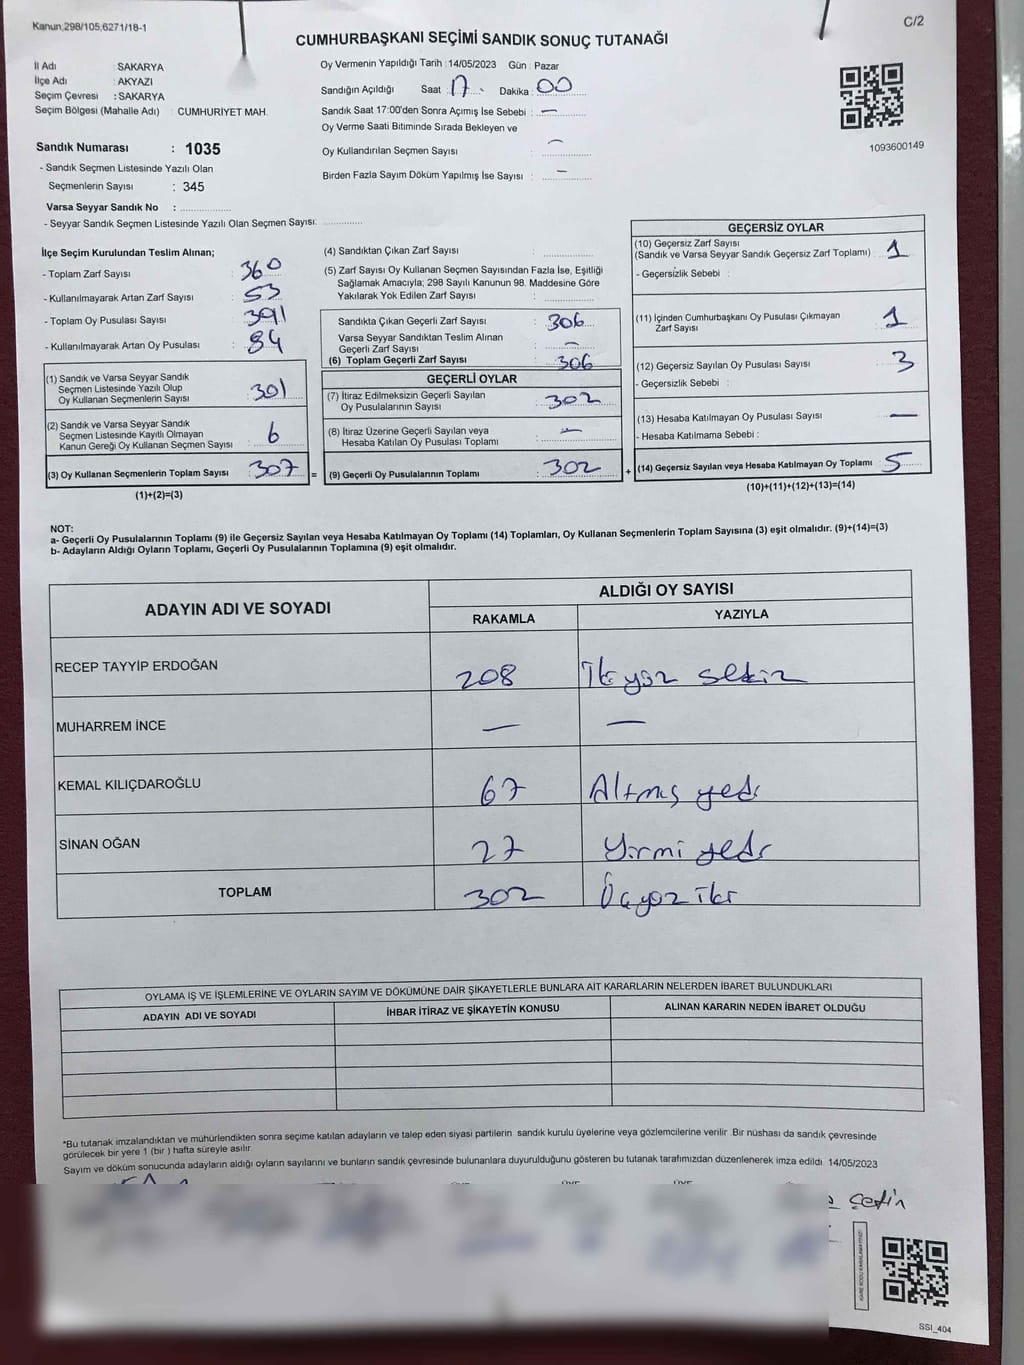 Kanun,298/105,6271/18-1
C/2
CUMHURBAŞKANI SEÇİMİ SANDIK SONUÇ TUTANAĞI
İl Adı SAKARYA
İlçe Adı : AKYAZI
Seçim Çevresi : SAKARYA
Seçim Bölgesi (Mahalle Adı) : CUMHURİYET MAH.
Oy Vermenin Yapıldığı Tarih : 14/05/2023 Gün : Pazar
Sandığın Açıldığı Saat : 17 Dakika : 00
Sandık Saat 17:00'den Sonra Açımış İse Sebebi : —
Oy Verme Saati Bitiminde Sırada Bekleyen ve
Oy Kullandırılan Seçmen Sayısı : —
Birden Fazla Sayım Döküm Yapılmış İse Sayısı : —
1093600149
Sandık Numarası : 1035
- Sandık Seçmen Listesinde Yazılı Olan
Seçmenlerin Sayısı : 345
Varsa Seyyar Sandık No :
- Seyyar Sandık Seçmen Listesinde Yazılı Olan Seçmen Sayısı:
İlçe Seçim Kurulundan Teslim Alınan;
- Toplam Zarf Sayısı : 360
- Kullanılmayarak Artan Zarf Sayısı : 53
- Toplam Oy Pusulası Sayısı : 391
- Kullanılmayarak Artan Oy Pusulası : 84
(1) Sandık ve Varsa Seyyar Sandık
Seçmen Listesinde Yazılı Olup
Oy Kullanan Seçmenlerin Sayısı : 301
(2) Sandık ve Varsa Seyyar Sandık
Seçmen Listesinde Kayıtlı Olmayan
Kanun Gereği Oy Kullanan Seçmen Sayısı : 6
(3) Oy Kullanan Seçmenlerin Toplam Sayısı : 307 =
(1)+(2)=(3)
(4) Sandıktan Çıkan Zarf Sayısı :
(5) Zarf Sayısı Oy Kullanan Seçmen Sayısından Fazla İse, Eşitliği
Sağlamak Amacıyla; 298 Sayılı Kanunun 98. Maddesine Göre
Yakılarak Yok Edilen Zarf Sayısı :
Sandıkta Çıkan Geçerli Zarf Sayısı : 306
Varsa Seyyar Sandıktan Teslim Alınan
Geçerli Zarf Sayısı : —
(6) Toplam Geçerli Zarf Sayısı : 306
GEÇERLİ OYLAR
(7) İtiraz Edilmeksizin Geçerli Sayılan
Oy Pusulalarının Sayısı : 302
(8) İtiraz Üzerine Geçerli Sayılan veya
Hesaba Katılan Oy Pusulası Toplamı : —
(9) Geçerli Oy Pusulalarının Toplamı : 302 +
GEÇERSİZ OYLAR
(10) Geçersiz Zarf Sayısı
(Sandık ve Varsa Seyyar Sandık Geçersiz Zarf Toplamı) : 1
- Geçersizlik Sebebi :
(11) İçinden Cumhurbaşkanı Oy Pusulası Çıkmayan
Zarf Sayısı : 1
(12) Geçersiz Sayılan Oy Pusulası Sayısı : 3
- Geçersizlik Sebebi :
(13) Hesaba Katılmayan Oy Pusulası Sayısı : —
- Hesaba Katılmama Sebebi :
(14) Geçersiz Sayılan veya Hesaba Katılmayan Oy Toplamı : 5
(10)+(11)+(12)+(13)=(14)
NOT:
a- Geçerli Oy Pusulalarının Toplamı (9) ile Geçersiz Sayılan veya Hesaba Katılmayan Oy Toplamı (14) Toplamları, Oy Kullanan Seçmenlerin Toplam Sayısına (3) eşit olmalıdır. (9)+(14)=(3)
b- Adayların Aldığı Oyların Toplamı, Geçerli Oy Pusulalarının Toplamına (9) eşit olmalıdır.
ADAYIN ADI VE SOYADI ALDIĞI OY SAYISI
RAKAMLA YAZIYLA
RECEP TAYYİP ERDOĞAN 208 İkiyüz sekiz
MUHARREM İNCE — —
KEMAL KILIÇDAROĞLU 67 Altmış yedi
SİNAN OĞAN 27 Yirmi yedi
TOPLAM 302 Üçyüz iki
OYLAMA İŞ VE İŞLEMLERİNE VE OYLARIN SAYIM VE DÖKÜMÜNE DAİR ŞİKAYETLERLE BUNLARA AİT KARARLARIN NELERDEN İBARET BULUNDUKLARI
ADAYIN ADI VE SOYADI İHBAR İTİRAZ VE ŞİKAYETİN KONUSU ALINAN KARARIN NEDEN İBARET OLDUĞU
*Bu tutanak imzalandıktan ve mühürlendikten sonra seçime katılan adayların ve talep eden siyasi partilerin sandık kurulu üyelerine veya gözlemcilerine verilir .Bir nüshası da sandık çevresinde
görülecek bir yere 1 (bir ) hafta süreyle asılır.
Sayım ve döküm sonucunda adayların aldığı oyların sayılarını ve bunların sandık çevresinde bulunanlara duyurulduğunu gösteren bu tutanak tarafımızdan düzenlenerek imza edildi. 14/05/2023
Çetin
SSI_404